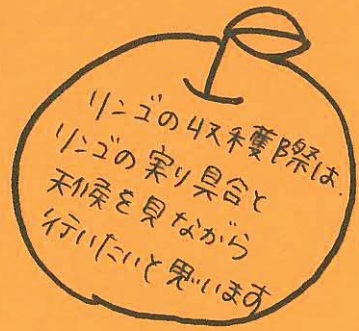 リンゴの収穫際は、
リンゴの実り具合と
天候を見ながら
行いたいと思います